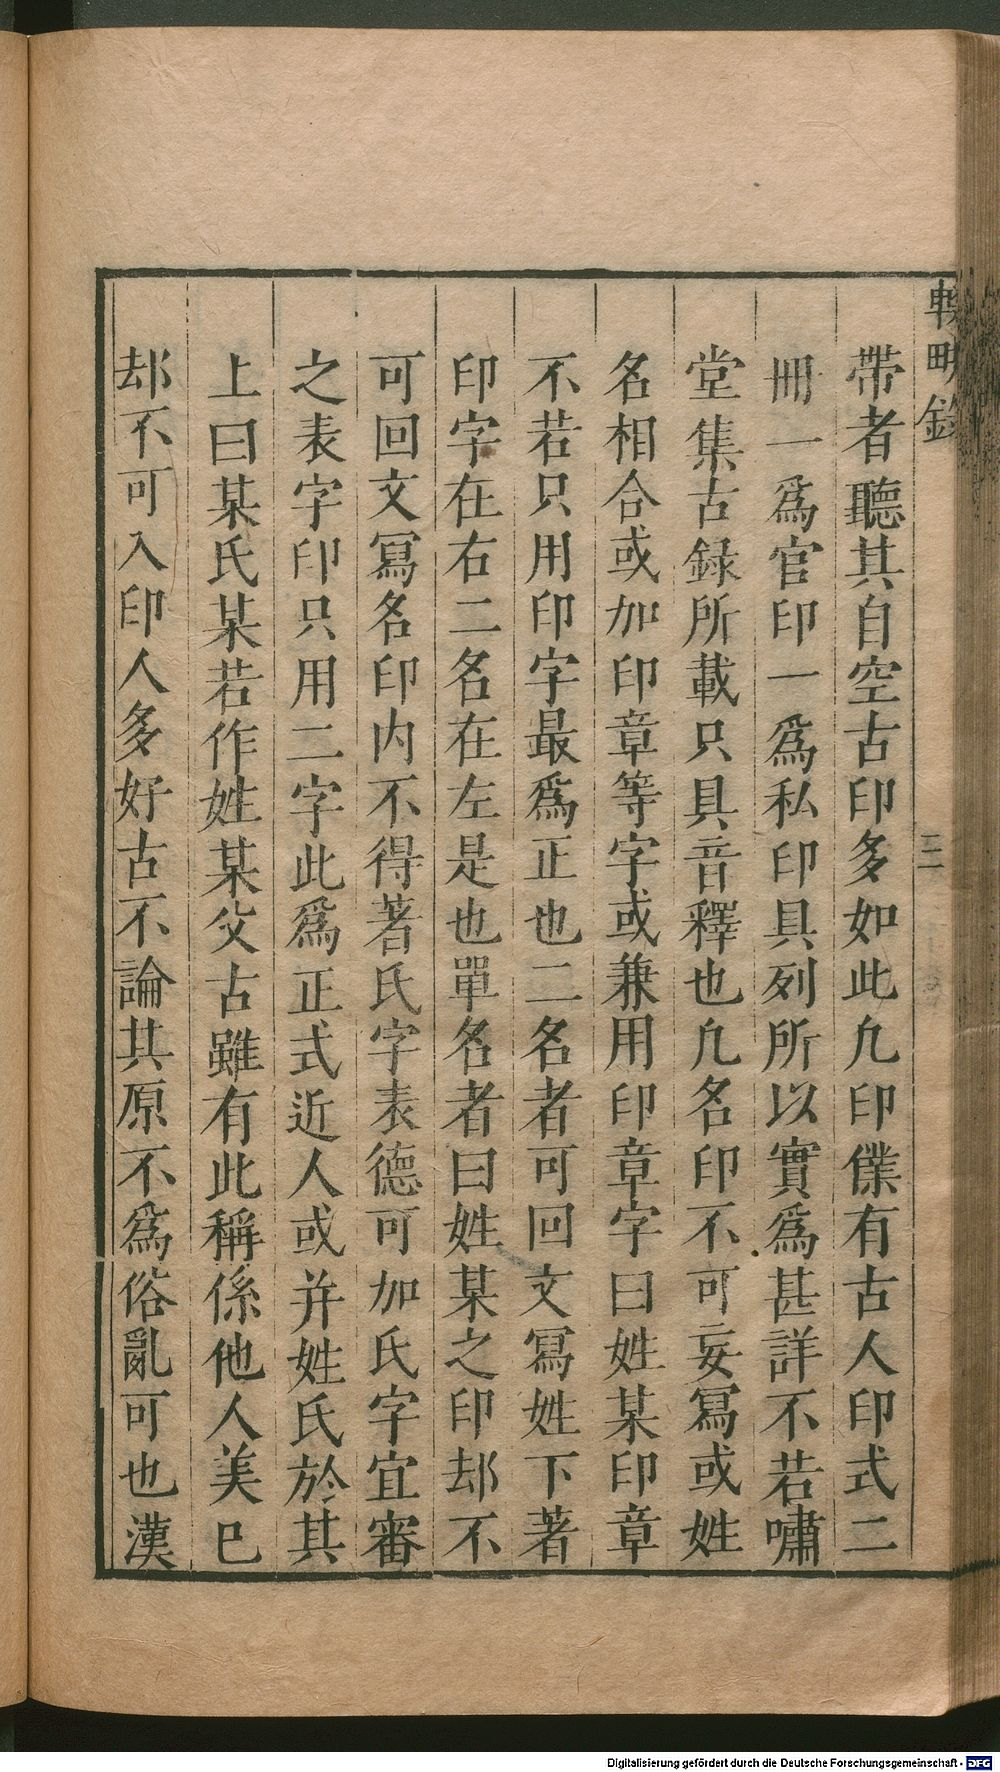 輟畊錄
三
帶者聽其自空古印多如此凢印僕有古人印式二
冊一爲官印一爲私印具列所以實爲甚詳不若嘯
堂集古録所載只具音釋也凢名印不可妄冩或姓
名相合或加印章等字或兼用印章字曰姓某印章
不若只用印字最爲正也二名者可回文冩姓下著
印字在右二名在左是也單名者曰姓某之印却不
可回文冩名印内不得著氏字表德可加氏字宜審
之表字印只用二字此爲正式近人或并姓氏於其
上曰某氏某若作姓某父古雖有此稱係他人美已
却不可入印人多好古不論其原不爲俗亂可也漢
Digitalisierung gefördert durch die Deutsche Forschungsgemeinschaft - DFG